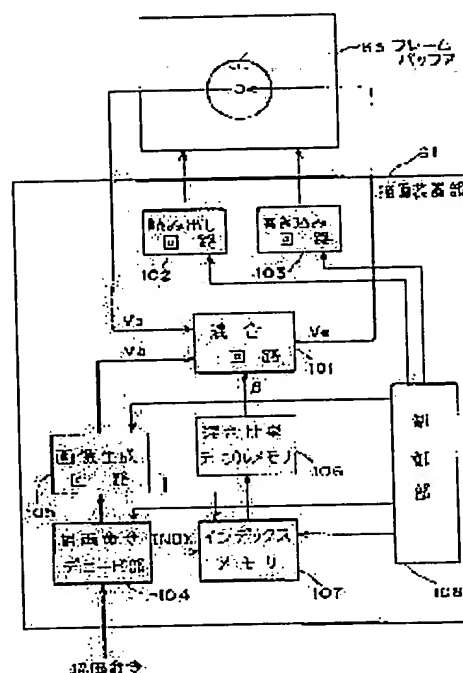 K3 フレーム
バッファ
G1
描画装置部
読み出し
回路
102
書き込み
回路
103
Va
Vb
混合
回路
Vc
101
β
混合比率
テーブルメモリ
106
画素生成
回路
105
描画命令
デコード部
104
INDX
インデックス
メモリ
107
108
描画命令